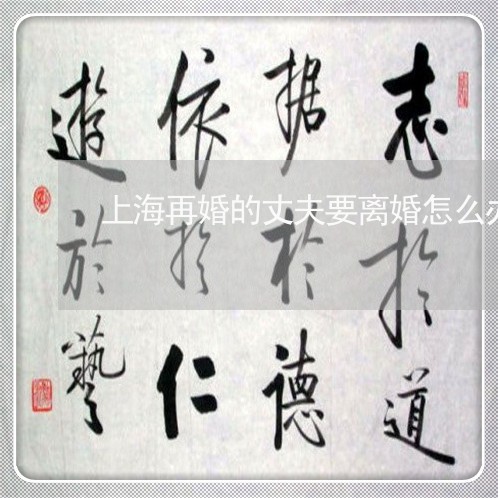 志於道
据於德
依於仁
遊於藝
上海再婚的丈夫要离婚怎么